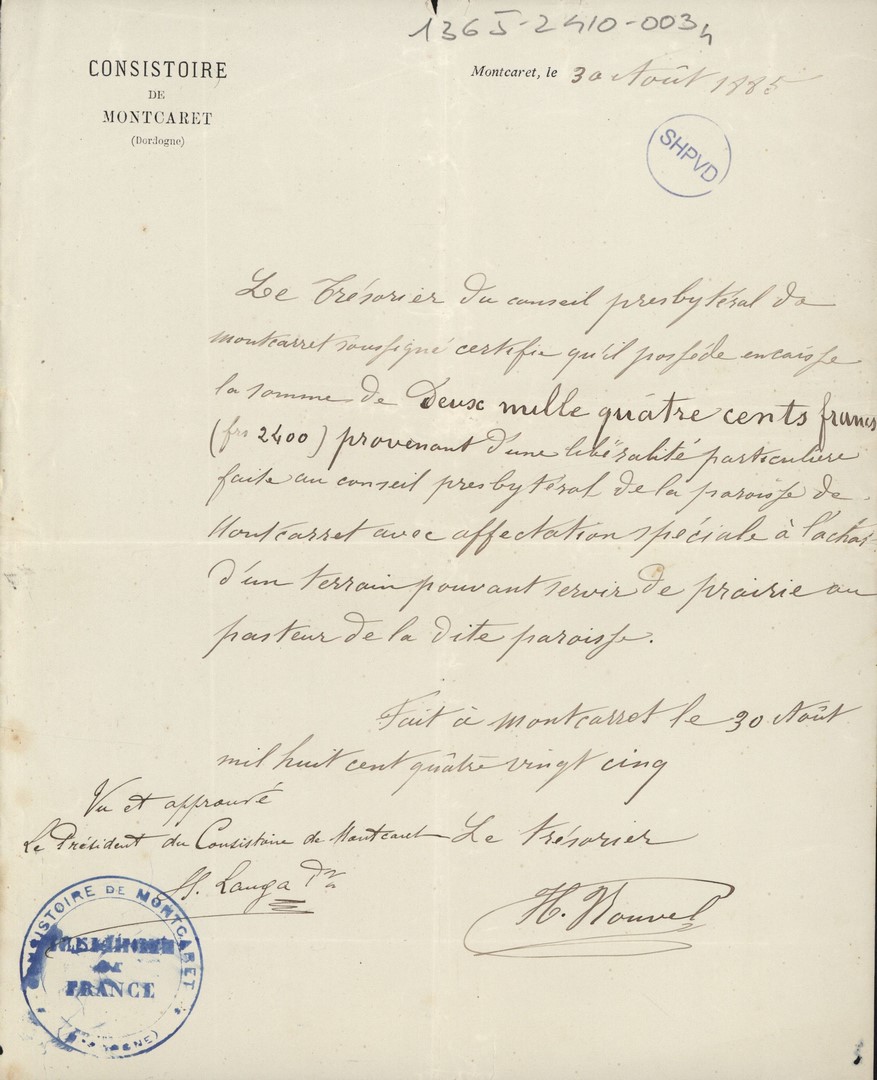 1365-2410-0034
CONSISTOIRE
DE
MONTCARET
(Dordogne)
Montcaret, le 30 Août 1885
SHPVD
Le Trésorier du conseil presbytéral de
Montcarret soussigné certifie qu'il possède en caisse
la somme de Deux mille quatre cents francs
(frs 2400) provenant d'une libéralité particulière
faite au conseil presbytéral de la paroisse de
Montcarret avec affectation spéciale à l'achat
d'un terrain pouvant servir de prairie au
pasteur de la dite paroisse.
Fait à Montcarret le 30 Août
mil huit cent quâtre vingt cinq
Vu et approuvé
Le Président du Consistoire de Montcaret
Le trésorier
H. Lauga
H. Nouvel
CONSISTOIRE DE MONTCARET
FRANCE